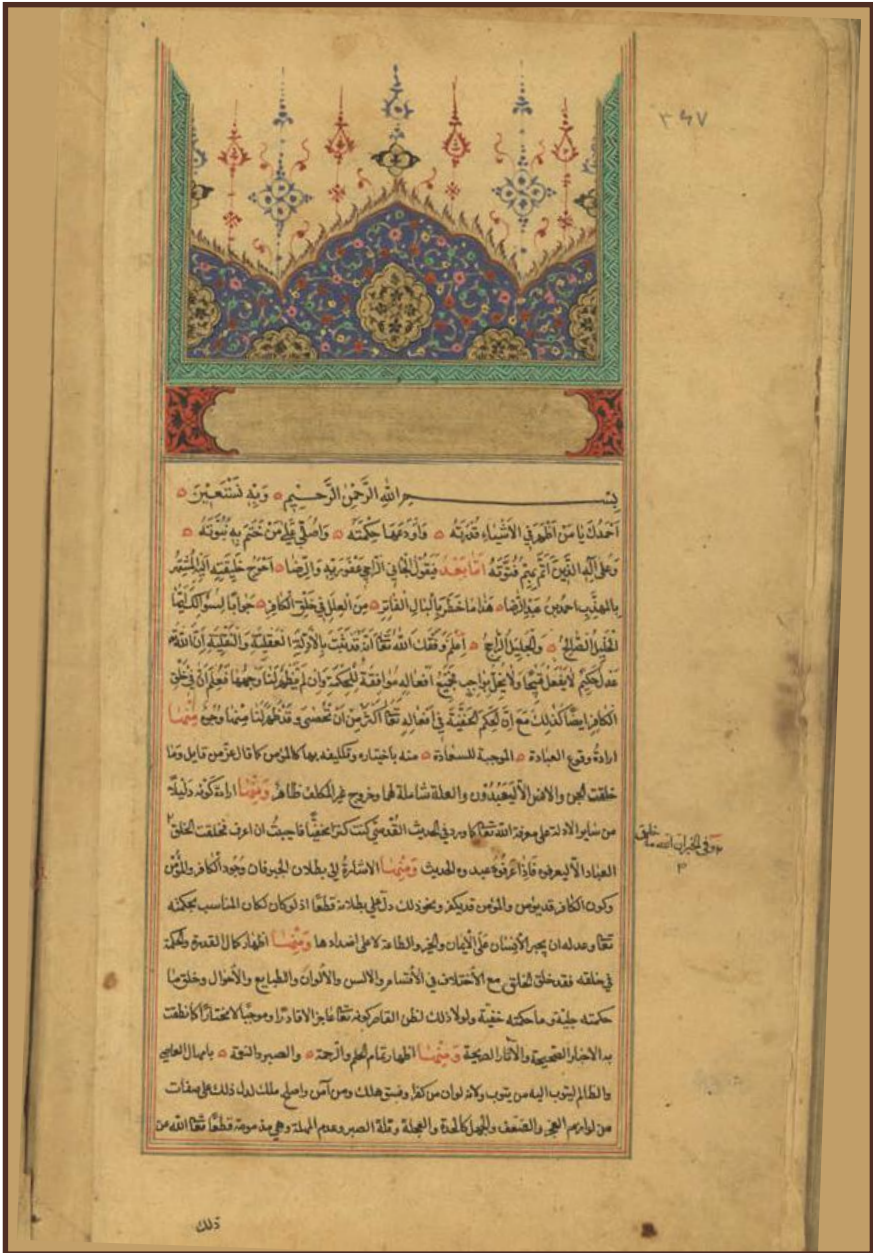 ٣٤٧
بسم الله الرَّحمٰن الرَّحيم وَبِهِ نَسْتَعِيْنَ
اَحْمَدُكَ يَا مَنْ اَظْهَرَ فِي الْاَشْيَاءِ قُدْرَتَهُ وَاَوْدَعَهَا حِكْمَتَهُ وَاُصَلِّي عَلٰى مَنْ خَتَمَ بِهِ نُبُوَّتَهُ
وَعَلٰى آلِهِ الَّذِيْنَ اَتَمَّ بِهِمْ فُتُوَّتَهُ اَمَّا بَعْدُ فَيَقُوْلُ الْجَانِي الرَّاجِي عَفْوَ رَبِّهِ وَالرِّضَا اَحْوَجُ خَلِيْقَتِهِ اِلَيْهِ الْمُشْتَهِرُ
بالمهذّب احمد بن عبد الرضا هٰذَا مَا خَطَرَ بِالْبَالِ الْفَاتِرِ مِنَ الْعِلَلِ فِي خَلْقِ الْكَافِرِ جَوَابًا لِسُؤَالِكَ اَيُّهَا
الْخَلِيْلُ الصَّالِحُ وَالْجَلِيْلُ الرَّاجِحُ اِعْلَمْ وَفَّقَكَ اللهُ تَعَالٰى اَنَّهُ قَدْ ثَبَتَ بِالْاَدِلَّةِ الْعَقْلِيَّةِ وَالنَّقْلِيَّةِ اَنَّ اللهَ
عَدْلٌ حَكِيْمٌ لَا يَفْعَلُ قَبِيْحًا وَلَا يُخِلُّ بِوَاجِبٍ فَجَمِيْعُ اَفْعَالِهِ مُوَافِقَةٌ لِلْحِكْمَةِ وَاِنْ لَمْ يَظْهَرْ لَنَا وَجْهُهَا فَعُلِمَ اَنَّ فِي خَلْقِ
الْكَافِرِ اَيْضًا كَذٰلِكَ مَعَ اِنَّ الْحِكَمَ الْخَفِيَّةَ فِي اَفْعَالِهِ تَعَالٰى اَكْثَرُ مِنْ اَنْ تُحْصٰى وَقَدْ ظَهَرَ لَنَا مِنْهَا وُجُوْهٌ مِنْهَا
ارادةُ وقوع العبادة الموجبة للسعادة منه باختياره وتكليفه بها كالمؤمن كما قال عزّ من قايل وَمَا
خلقت الجن والانس الّا ليعبدُوْن والعلة شاملة لهما وخروج غير المكلف ظاهر وَمِنْهَا ارادة كَوْنه دَليلًا
من ساير الادلة على معرفة الله تعالى كما ورد في الحديث القُدسيّ كنت كنزا مخفيًّا فاحببتُ ان اعرف فخلقت الخلق
وفي الخبر ان الله ما خلق
العباد الّا ليعرفوه فَاِذَا عَرَفُوْهُ عبدوه الحديث وَمِنْهَا الاشارةُ اِلٰى بطلان الجبر فان وُجُود الْكافر والْمُؤْمن
وكون الكافر قد يؤمن والمؤمن قد يكفر ونحو ذلك دلّ على بطلانه قطعًا اذ لو كان لكان المناسب بحكمته
تعالى وعدله ان يجبر الْاِنْسان عَلَى الْاِيْمان والخير والطاعة لا على اضدادها وَمِنْهَا اظهار كمال القدرة والحكمة
في خلقه فقد خلق الخلق مع الْاختلاف في الْاَقسام والالسن والْاَلوان والطبايع والْاَحوال وخلق ما
حكمته جليّة وما حكمته خفيّة ولولا ذلك لظن القاصر كونه تعالى عاجزا لا قادرًا وموجبًا لا مختارًا كما نطقت
به الاخبار الصّحيحة والآثار الصريحة وَمِنْهَا اظهار تمام الحلم والرّحمة والصبر والنقمة بامهال العاصي
والظالم ليتوب اليه من يتوب ولانه لو ان من كفر وفسق هلك ومن آمن واصلح ملك لدل ذلك على صفات
من لوازم العجز والضعف والجهل كالحدة والعجلة وقلة الصبر وعدم المهلة وهي مذمومة قطعًا تعالى الله عن
ذلك